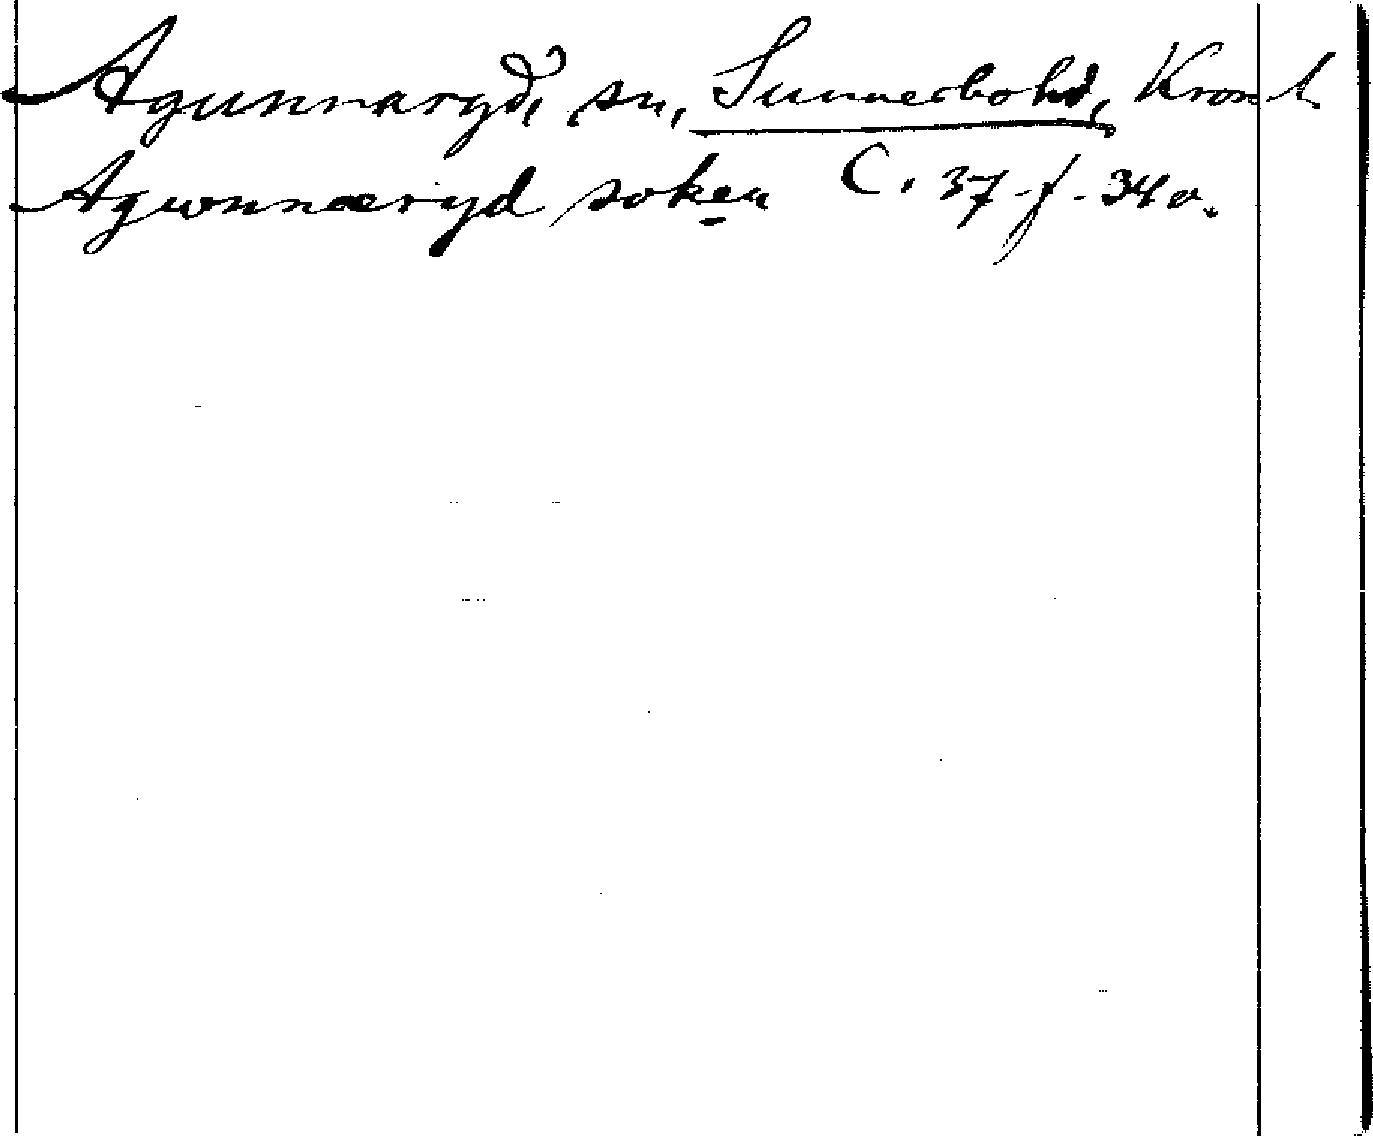 Agunnaryd, sn, Sunnerbohd, Kron l.
Agwnnæryd soken C. 37 f. 34 a.